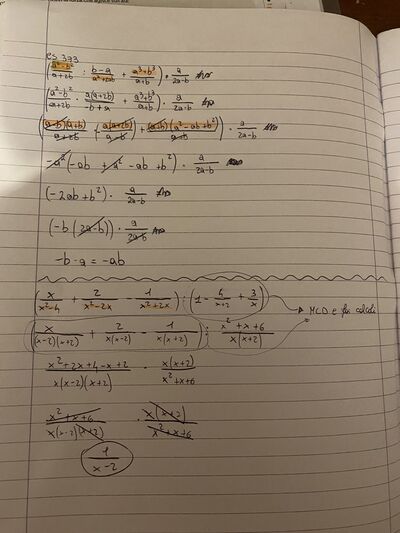 es 373
(a²-b²/a+2b : b-a/a²+2ab + a³+b³/a+b) · a/2a-b
(a²-b²/a+2b · a(a+2b)/-b+a + a³+b³/a+b) · a/2a-b
((a-b)(a+b)/a+2b · a(a+2b)/a-b + (a+b)(a²-ab+b²)/a+b) · a/2a-b
-a²(-ab + a² -ab +b²) · a/2a-b
(-2ab+b²) · a/2a-b
(-b(2a-b)) · a/2a-b
-b·a = -ab
(x/x²-4 + 2/x²-2x - 1/x²+2x) : (1 - 4/x+2 + 3/x) → MCD e fai calcoli
(x/(x-2)(x+2) + 2/x(x-2) - 1/x(x+2)) : x²+x+6/x(x+2)
x²+2x+4-x+2/x(x-2)(x+2) · x(x+2)/x²+x+6
x²+x+6/x(x-2)(x+2) · x(x+2)/x²+x+6
1/x-2